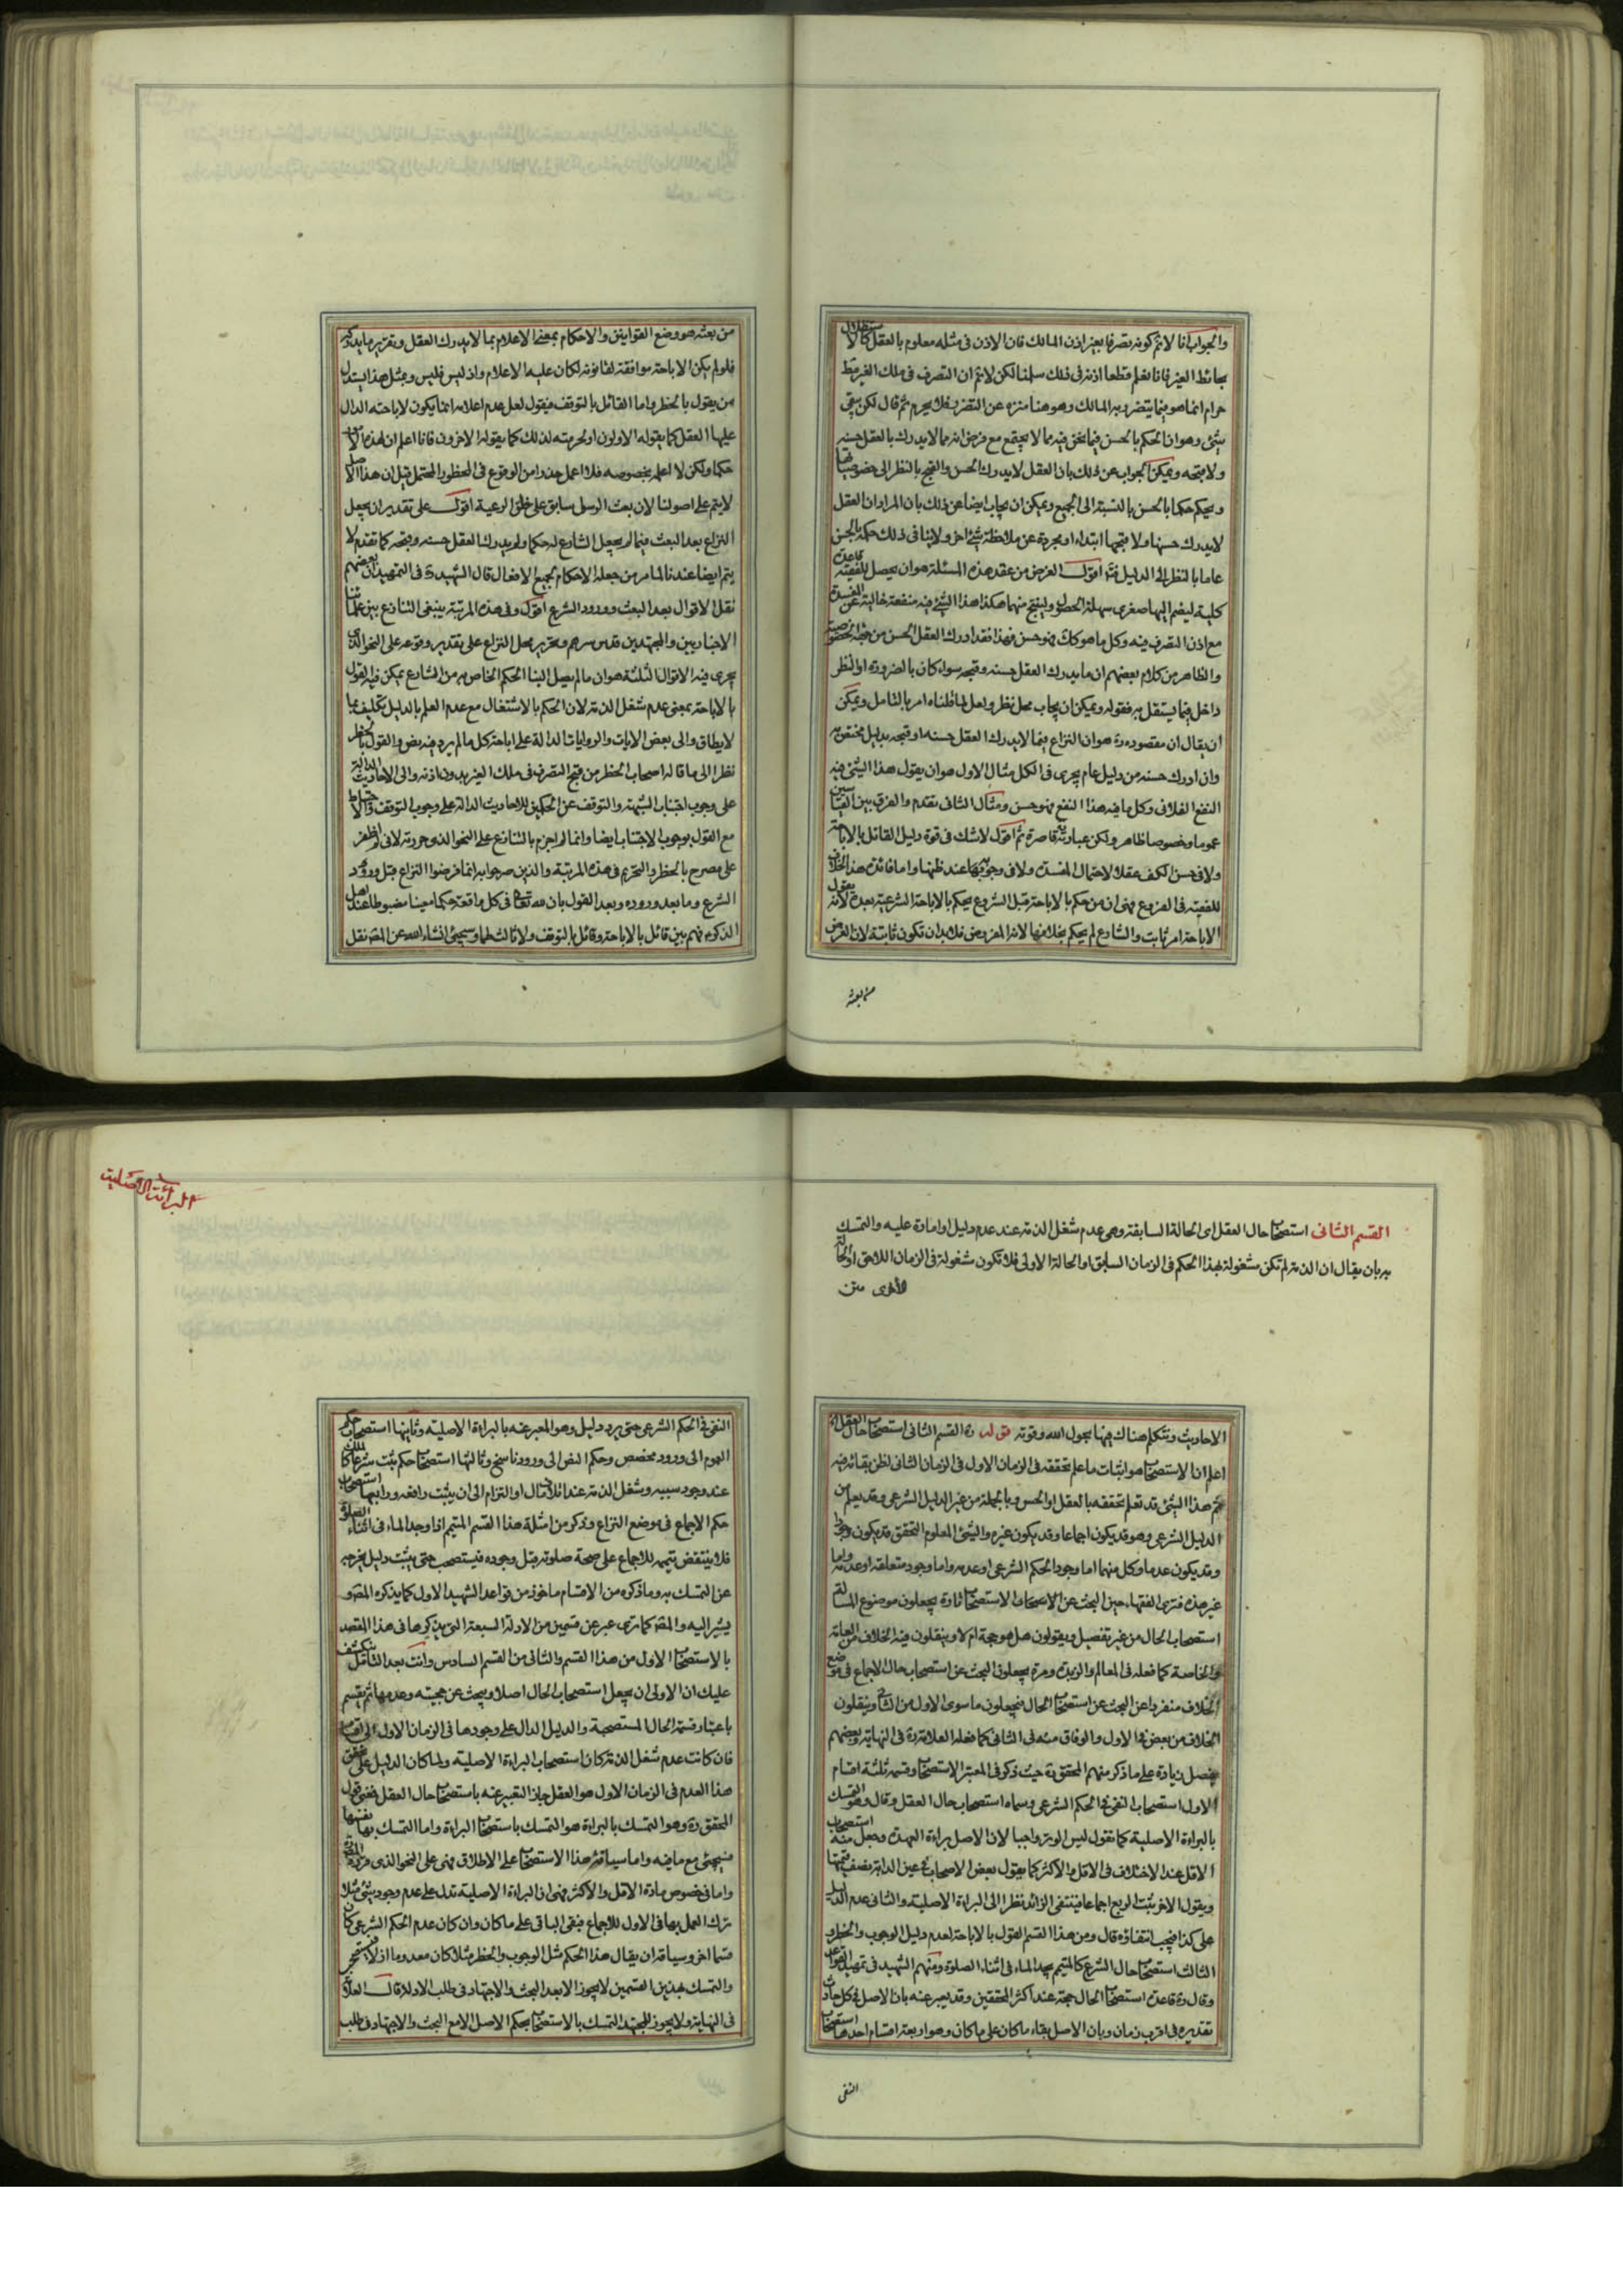 والجواب انا لا نم كونه تصرفا بغير اذن المالك فان الاذن فى مثله معلوم بالعقل كالاستظلال
بحائط الغير فانا نعلم قطعا اذنه فى ذلك سلمنا لكن لا نم ان التصرف فى ملك الغير مط
حرام انما هو فيما يتضرر به المالك وهو هنا منزه عن التضرر فلا يحرم ثم قال لكن بقى
شئ وهو ان الحكم بالحسن فيما نحن فيه مما لا يجتمع مع فرض انه مما لا يدرك بالعقل حسنه
ولا قبحه ويمكن الجواب عن ذلك بان العقل لا يدرك الحسن والقبح بالنظر الى خصوصياتها
ويحكم حكما بالحسن بالنسبة الى الجميع ويمكن ان يجاب ايضا عن ذلك بان المراد ان العقل
لا يدرك حسنها ولا قبحها ابتداء او مجردة عن ملاحظة شئ اخر ولا ينافى ذلك حكمه بالحسن
عاما بالنظر الى الدليل اقول الغرض من عقد هذه المسئلة هو ان يحصل للفقيه قاعدة
كلية ليضم اليها صغرى سهلة الحصول ولينتج منهما هكذا هذا الشئ فيه منفعة خالية عن المفسدة
مع اذن التصرف فيه وكل ما هو كك فهو حسن فهذا فقد ادرك العقل الحسن من جهة الخصوصية
والظاهر من كلام بعضهم ان ما يدرك العقل حسنه وقبحه سواء كان بالضرورة او النظر
داخل فيما يستقل به فقوله ويمكن ان يجاب محل نظر ولعل لما قلناه امر بالتامل ويمكن
ان يقال ان مقصوده ره هو ان النزاع فيما لا يدرك العقل حسنه او قبحه بدليل مختص به
وان ادرك حسنه من دليل عام يجرى فى الكل مثال الاول هو ان يقول هذا الشئ فيه
النفع الفلانى وكل ما فيه هذا النفع فهو حسن ومثال الثانى تقدم والفرق بين القياسين
عموما وخصوصا ظاهر ولكن عبارته قاصرة ثم اقول لا شك فى قوة دليل القائل بالاباحة
ولا فى حسن الكف عقلا لاحتمال المفسدة ولا فى وجوبها عند ظنها واما فائدة هذا الخلاف
للفقيه فى الفروع فهى ان من حكم بالاباحة قبل الشروع يحكم بالاباحة الشرعية بعده لانه يقول
الاباحة امر ثابت والشارع لم يحكم بخلافها لانه المفروض فلا بد ان تكون ثابتة لان الغرض
من بعثه
من بعثه هو وضع القوانين والاحكام بمعنى الاعلام بما لا يدرك العقل وتقرير ما يدركه
فلو لم يكن الاباحة موافقة لقانونه لكان عليه الاعلام واذ ليس فليس وبمثل هذا يستدل
من يقول بالحظر واما القائل بالتوقف فيقول لعل عدم اعلامه انما يكون لاباحته الدال
عليها العقل كما يقوله الاولون او لحرمته لذلك كما يقوله الاخرون فانا اعلم ان لهذا
حكما ولكن لا اعلم بخصوصه فلا اعمل حذرا من الوقوع فى الحظر والمحتمل قيل ان هذا الاصل
لا يتم على اصولنا لان بعث الرسل سابق على خلق الرعية اقول على تقدير ان يجعل
النزاع بعد البعث فيما لم يجعل الشارع له حكما ولم يدرك العقل حسنه وقبحه كما تقدم لا
يتم ايضا عندنا لما مر من جعله الاحكام لجميع الافعال قال الشهيد ره فى التمهيد ان بعضهم
نقل الاقوال بعد البعث وورود الشرع اقول وفى هذه المرتبة ينبغى التنازع بين علمائنا
الاخباريين والمجتهدين قدس سرهم وتحرير محل النزاع على تقدير وقوعه على النحو الذى
يجرى فيه الاقوال الثلثة هو ان ما لم يصل الينا الحكم الخاص به من الشارع يمكن فيه القول
بالاباحة بمعنى عدم شغل الذمة لان الحكم بالاشتغال مع عدم العلم بالدليل تكليف بما
لا يطاق والى بعض الايات والروايات الدالة على اباحة كل ما لم يرد فيه نص والقول بالحظر
نظرا الى ما قاله اصحاب الحظر من قبح التصرف فى ملك الغير بدون اذنه والى الاحاديث الدالة
على وجوب اجتناب الشبهة والتوقف عن الحكمين للاحاديث الدالة على وجوب التوقف والاحتياط
مع القول بوجوب الاجتناب ايضا وانما لم اجزم بالتنازع على النحو الذى حررته لانى لم اظفر
على مصرح بالحظر والتحريم فى هذه المرتبة والذين صرحوا به انما فرضوا النزاع قبل ورود
الشرع وما بعد وروده وبعد القول بان لله تعالى فى كل واقعة حكما معينا مضبوطا عند اهل
الذكر ع فهم بين قائل بالاباحة وقائل بالتوقف ولا ثالث لهما وسيجئ انشاء الله عن المص نقل
البرائت الاصلية
القسم الثانى استصحاب حال العقل اى الحالة السابقة وهى عدم شغل الذمة عند عدم دليل او امارة عليه والتمسك
به بان يقال ان الذمة لم تكن مشغولة بهذا الحكم فى الزمان السابق او الحالة الاولى فلا تكون مشغولة فى الزمان اللاحق او الحالة
الاخرى متن
الاحاديث ونتكلم هناك فيها بحول الله وقوته قوله ره القسم الثانى استصحاب حال العقل
اعلم ان الاستصحاب هو اثبات ما علم تحققه فى الزمان الاول فى الزمان الثانى لظن بقائه فيه
ثم هذا الشئ قد تعلم تحققه بالعقل او الحس وبالجملة من غير الدليل الشرعى وقد يعلم من
الدليل الشرعى وهو قد يكون اجماعا وقد يكون غيره والشئ المعلوم التحقق قد يكون وجودا
وقد يكون عدما وكل منهما اما وجود الحكم الشرعى او عدمه واما وجود متعلقه او عدمه واما
غير هذه فترى الفقهاء حين البحث عن الاستصحاب تارة يجعلون موضوع المسئلة
استصحاب الحال من غير تفصيل ويقولون هل هو حجة ام لا وينقلون فيه الخلاف من العامة
والخاصة كما فعله فى المعالم والزبدة ومرة يجعلون البحث عن استصحاب حال الاجماع فى موضع
الخلاف منفردا عن البحث عن استصحاب الحال فيجعلون ما سوى الاول من الثانى وينقلون
الخلاف من بعض فى الاول والوفاق منه فى الثانى كما فعله العلامة ره فى النهاية وبعضهم
يفصل زيادة على ما ذكر منهم المحقق ره حيث ذكر فى المعتبر الاستصحاب وقسمه ثلثة اقسام
الاول استصحاب النفى فى الحكم الشرعى وسماه استصحاب حال العقل وقال وهو التمسك
بالبراءة الاصلية كما نقول ليس الوتر واجبا لان الاصل براءة العهدة وجعل منه استصحاب
الاقل عند الاختلاف فى الاقل والاكثر كما يقول بعض الاصحاب فى عين الدابة نصف قيمتها
ويقول الاخر يثبت الربع اجماعا فينتفى الزائد نظرا الى البراءة الاصلية والثانى عدم الدليل
على كذا فيجب انتفاؤه قال ومن هذا القسم القول بالاباحة لعدم دليل الوجوب والحظر و
الثالث استصحاب حال الشرع كالمتيمم يجد الماء فى اثناء الصلوة ومنهم الشهيد فى تمهيد القواعد
وقال ره قاعدة استصحاب الحال حجة عند اكثر المحققين وقد يعبر عنه بان الاصل فى كل حادث
تقديره فى اقرب زمان وبان الاصل بقاء ما كان على ما كان وهو اربعة اقسام احدها استصحاب
النفى
النفى فى الحكم الشرعى حتى يرد دليل وهو المعبر عنه بالبراءة الاصلية وثانيها استصحاب حكم
العموم الى ورود مخصص وحكم النص الى ورود ناسخ وثالثها استصحاب حكم ثبت شرعا كالملك
عند وجود سببه وشغل الذمة عند اتلاف مال او التزام الى ان يثبت رافعه ورابعها استصحاب
حكم الاجماع فى موضع النزاع وذكر من امثلة هذا القسم المتيمم اذا وجد الماء فى اثناء الصلوة
فلا ينتقض تيممه للاجماع على صحة صلوته قبل وجوده فيستصحب حتى يثبت دليل يخرجه
عن التمسك به وما ذكره من الاقسام ماخوذ من قواعد الشهيد الاول كما يذكره المص و
يشير اليه والمص كما ترى عبر عن قسمين من الادلة السبعة التى يذكرها فى هذا المقصد
بالاستصحاب الاول من هذا القسم والثانى من القسم السادس وانت بعد التامل ينكشف
عليك ان الاولى ان يجعل استصحاب الحال اصلا ويبحث عن حجيته وعدمها ثم يقسم
باعتبار قسمة الحال المستصحبة والدليل الدال على وجودها فى الزمان الاول الى اقسام
فان كانت عدم شغل الذمة كان استصحاب البراءة الاصلية ولما كان الدليل على تحقق
هذا العدم فى الزمان الاول هو العقل جاز التعبير عنه باستصحاب حال العقل فمعنى قول
المحقق ره وهو التمسك بالبراءة هو التمسك باستصحاب البراءة واما التمسك بها نفسها
فسيجئ مع ما فيه واما سياقة هذا الاستصحاب على الاطلاق فهى على النحو الذى قرره المص
واما فى خصوص مادة الاقل والاكثر فهى ان البراءة الاصلية تدل على عدم وجوب شئ مثلا
ترك العمل بها فى الاول للاجماع فبقى الباقى على ما كان وان كان عدم الحكم الشرعى كان
قسما اخر وسياقه ان يقال هذا الحكم مثل الوجوب والحظر مثلا كان معدوما اذ لا فيستمر
والتمسك بهذين القسمين لا يجوز الا بعد البحث والاجتهاد فى طلب الادلة قال العلامة
فى النهاية ولا يجوز للمجتهد التمسك بالاستصحاب بحكم الاصل الا مع البحث والاجتهاد فى طلب